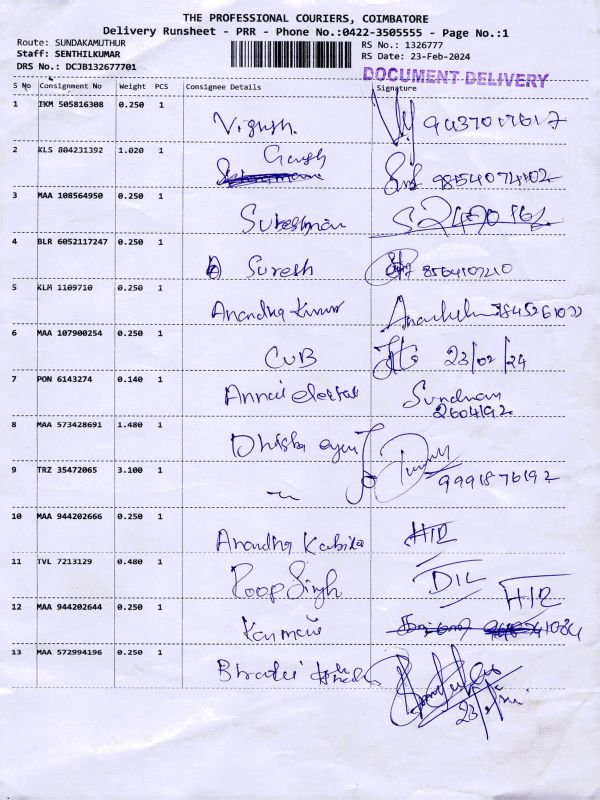 THE PROFESSIONAL COURIERS, COIMBATORE
Delivery Runsheet - PRR - Phone No.:0422-3505555 - Page No.:1
Route: SUNDAKAMUTHUR RS No.: 1326777
Staff: SENTHILKUMAR RS Date: 23-Feb-2024
DRS No.: DCJB132677701
DOCUMENT DELIVERY
S No Consignment No Weight PCS Consignee Details Signature
1 IKM 505816308 0.250 1 Vignesh.
2 KLS 804231392 1.020 1 Ganesh 98154074102
3 MAA 108564950 0.250 1
4 BLR 6052117247 0.250 1 Suresh 8564107210
5 KLM 1109710 0.250 1 Anandha Kumar
6 MAA 107900254 0.250 1 CUB 23/02/24
7 PON 6143274 0.140 1 Annai
2604192
8 MAA 573428691 1.480 1
9 TRZ 35472065 3.100 1 9991876192
10 MAA 944202666 0.250 1 Anandha
11 TVL 7213129 0.480 1 Roop Singh
12 MAA 944202644 0.250 1
13 MAA 572994196 0.250 1